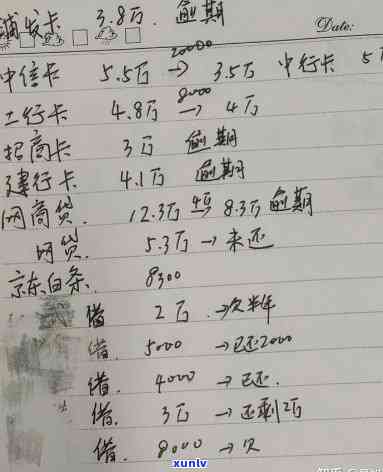 浦发卡 3.8万. 逾期
Date:
20000
中信卡 5.5万 → 3.5万 中行卡 5万
8000
工行卡 4.8万 → 4万
招商卡 3万 逾期
建行卡 4.1万 逾期
网商贷. 12.3万 8.3万 逾期
网贷. 5.3万 → 未还
京东白条. 8300
借 2万 → 欠半年
借. 5000 → 已还2000
借. 4000 → 已还.
借. 3万 → 还剩2万
借. 8000 → 欠
知乎
xunlv